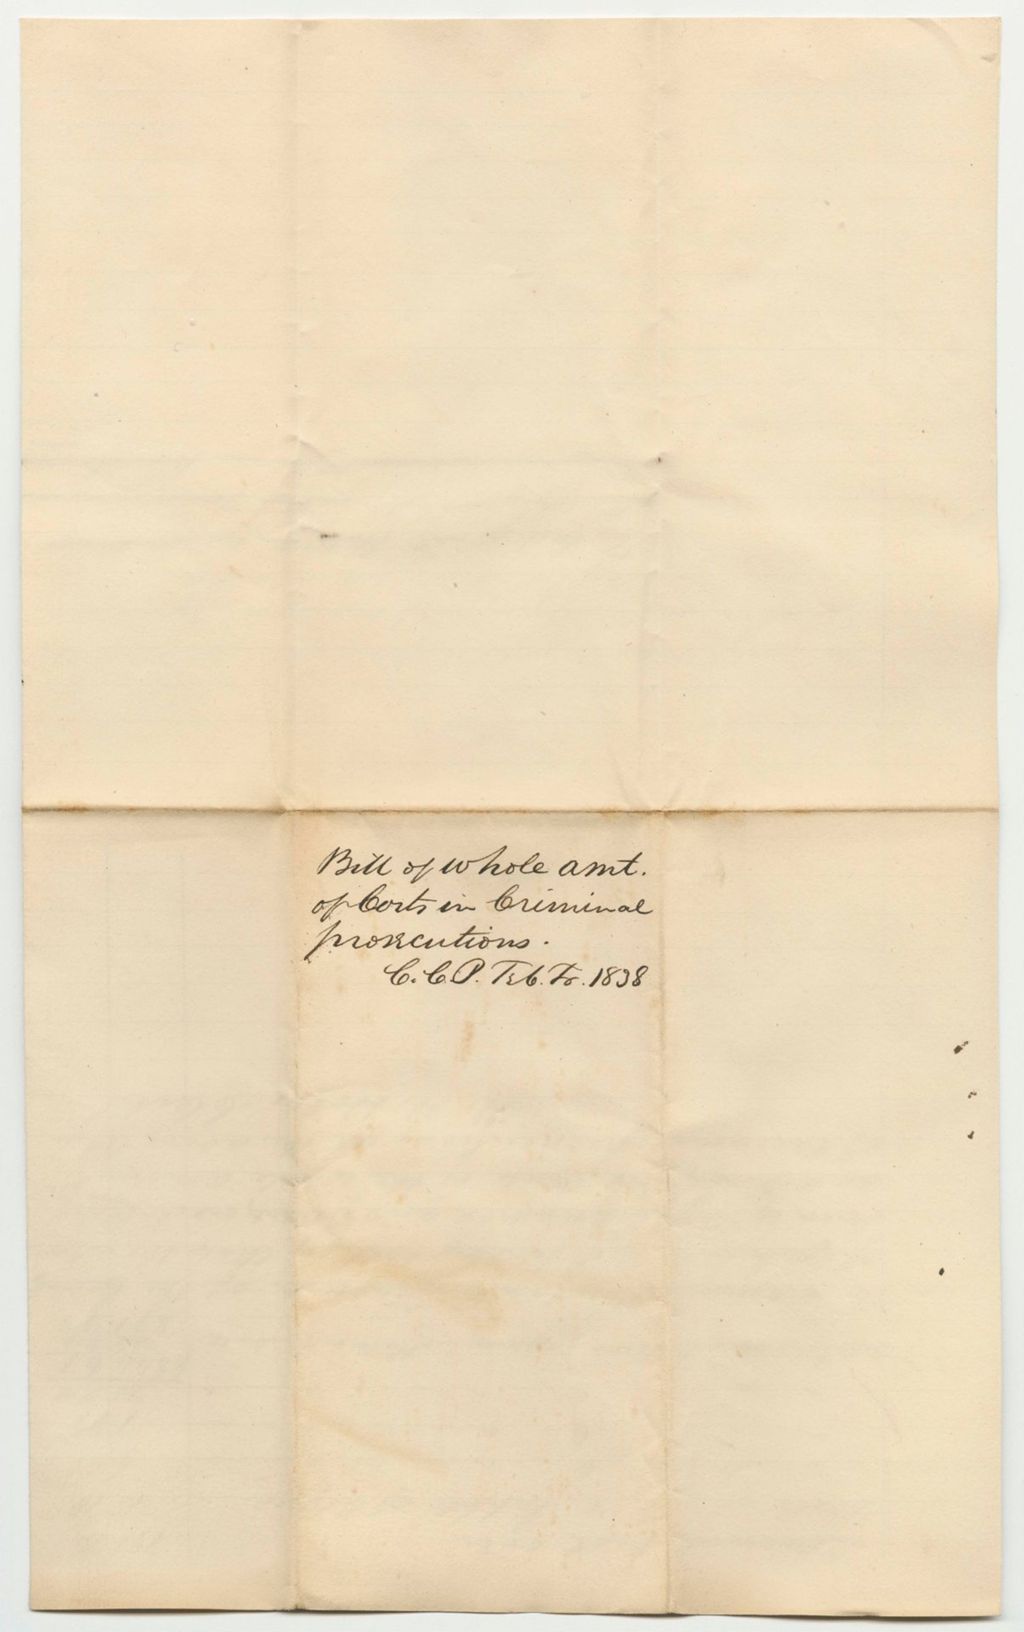 Bill of whole amt.
of Costs in Criminal
prosecutions.
C.C.P. Feb. Tr. 1838